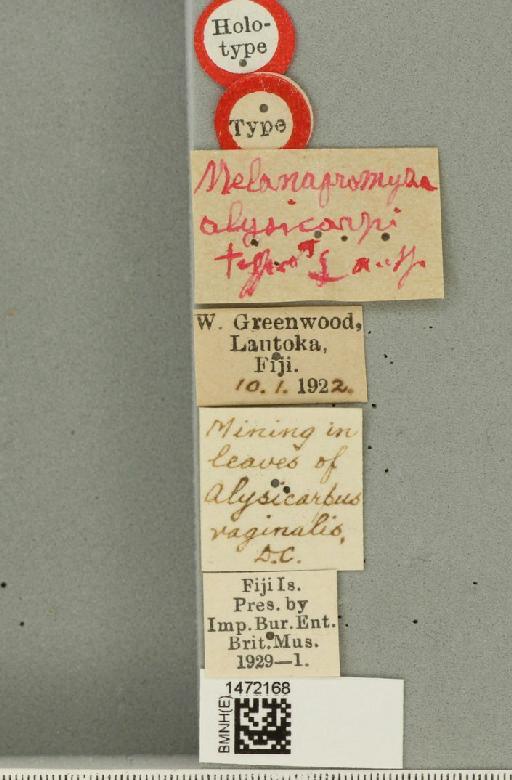 Holo-
type
Type
Melanagromyza
alysicarpi
W. Greenwood,
Lautoka,
Fiji.
10.1.1922.
Mining in
leaves of
Alysicarbus
vaginalis,
D.C.
Fiji Is.
Pres. by
Imp. Bur. Ent.
Brit. Mus.
1929—1.
1472168
BMNH(E)